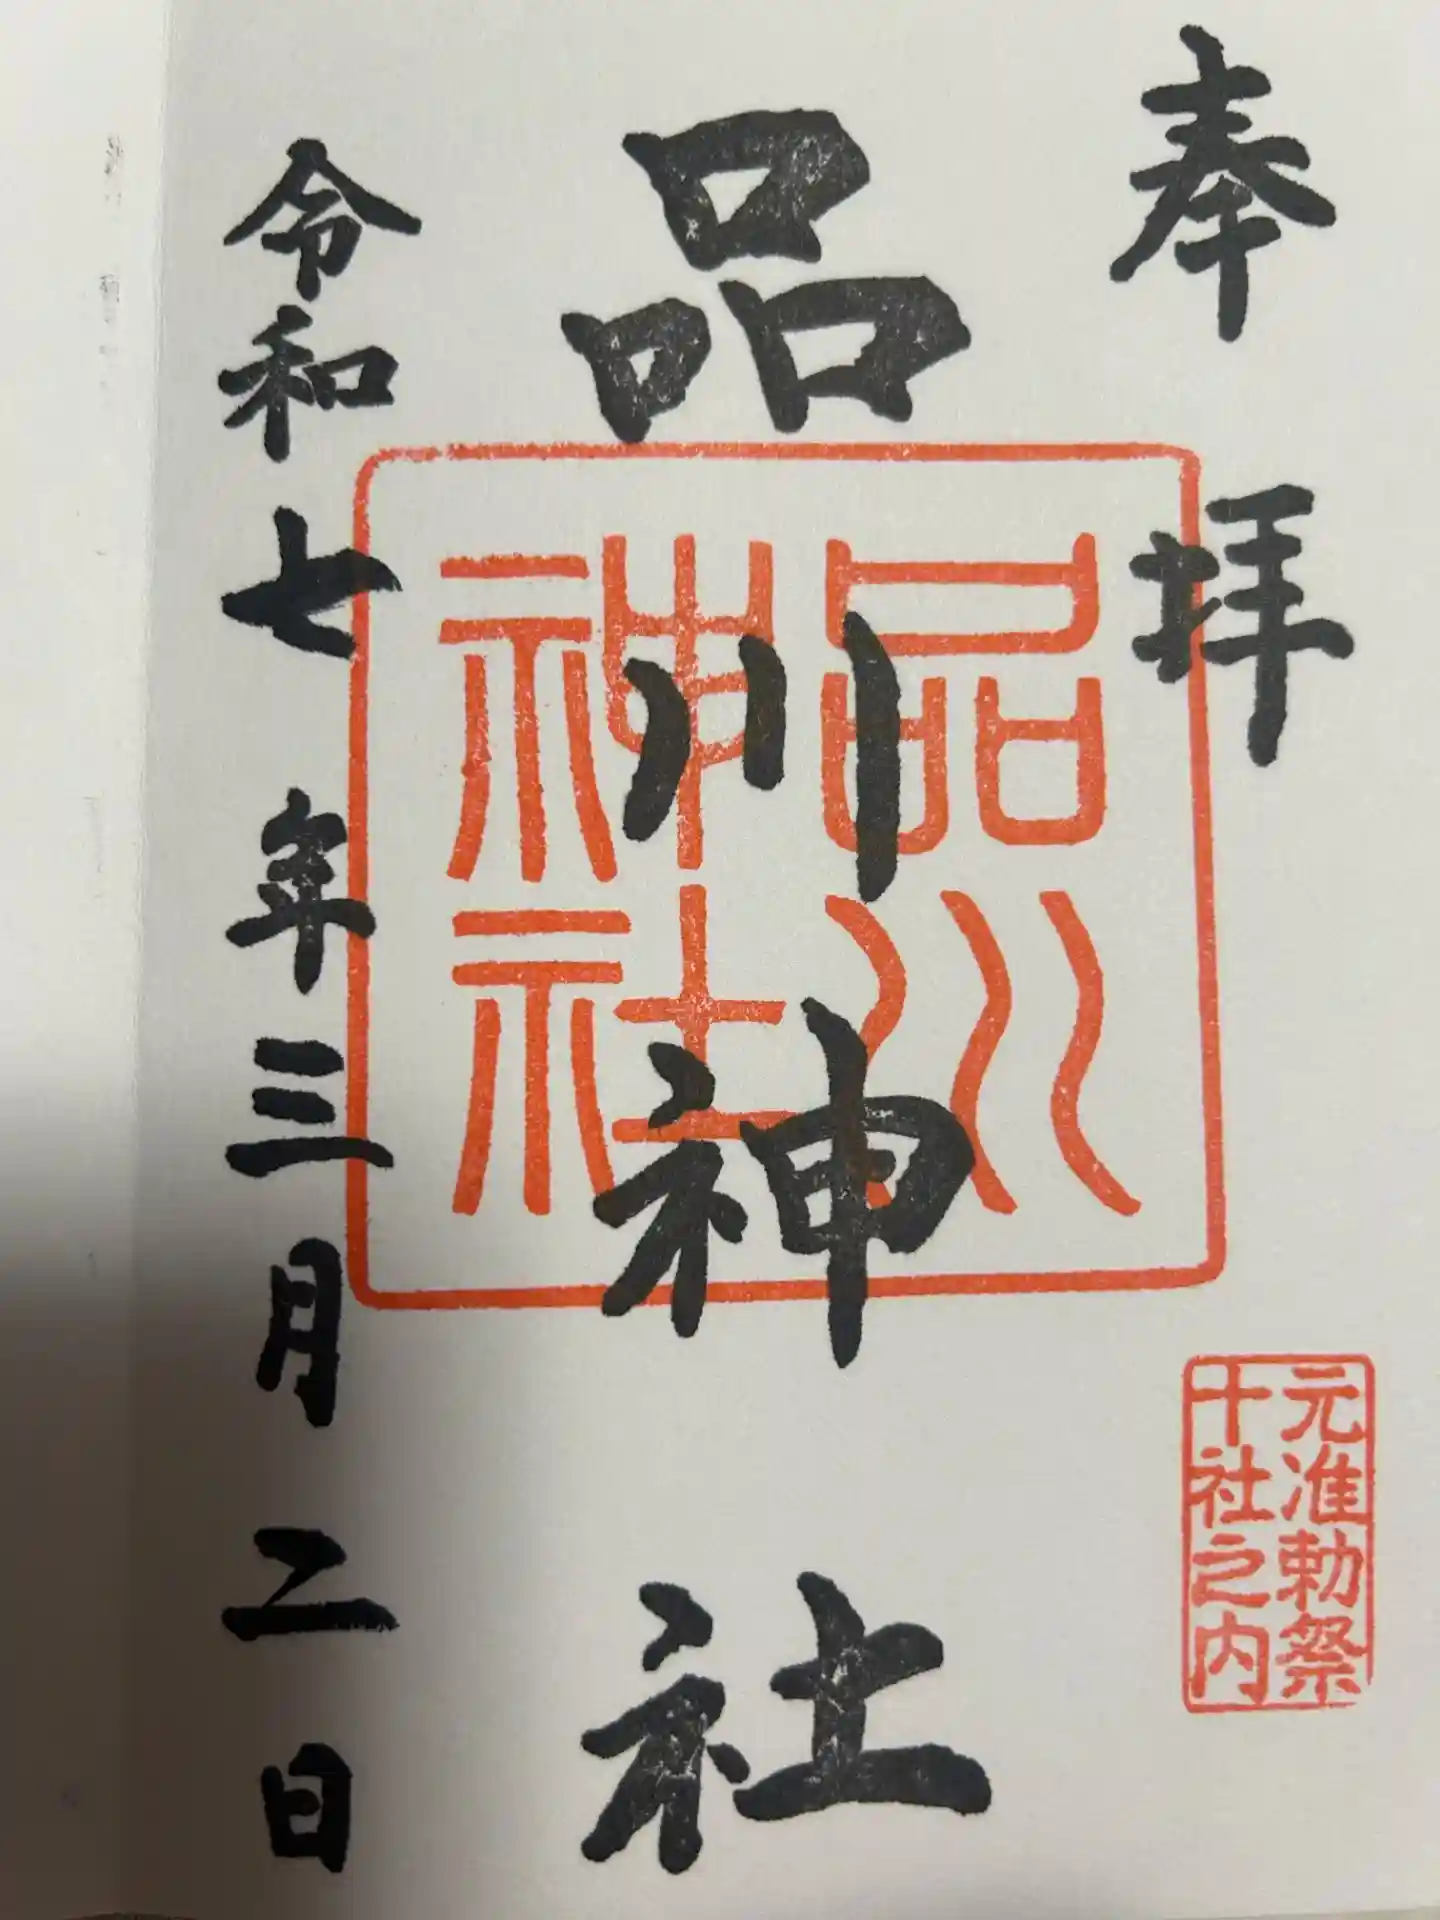 奉拝
品川神社
品川
神社
元准勅祭
十社之内
令和七年三月二日